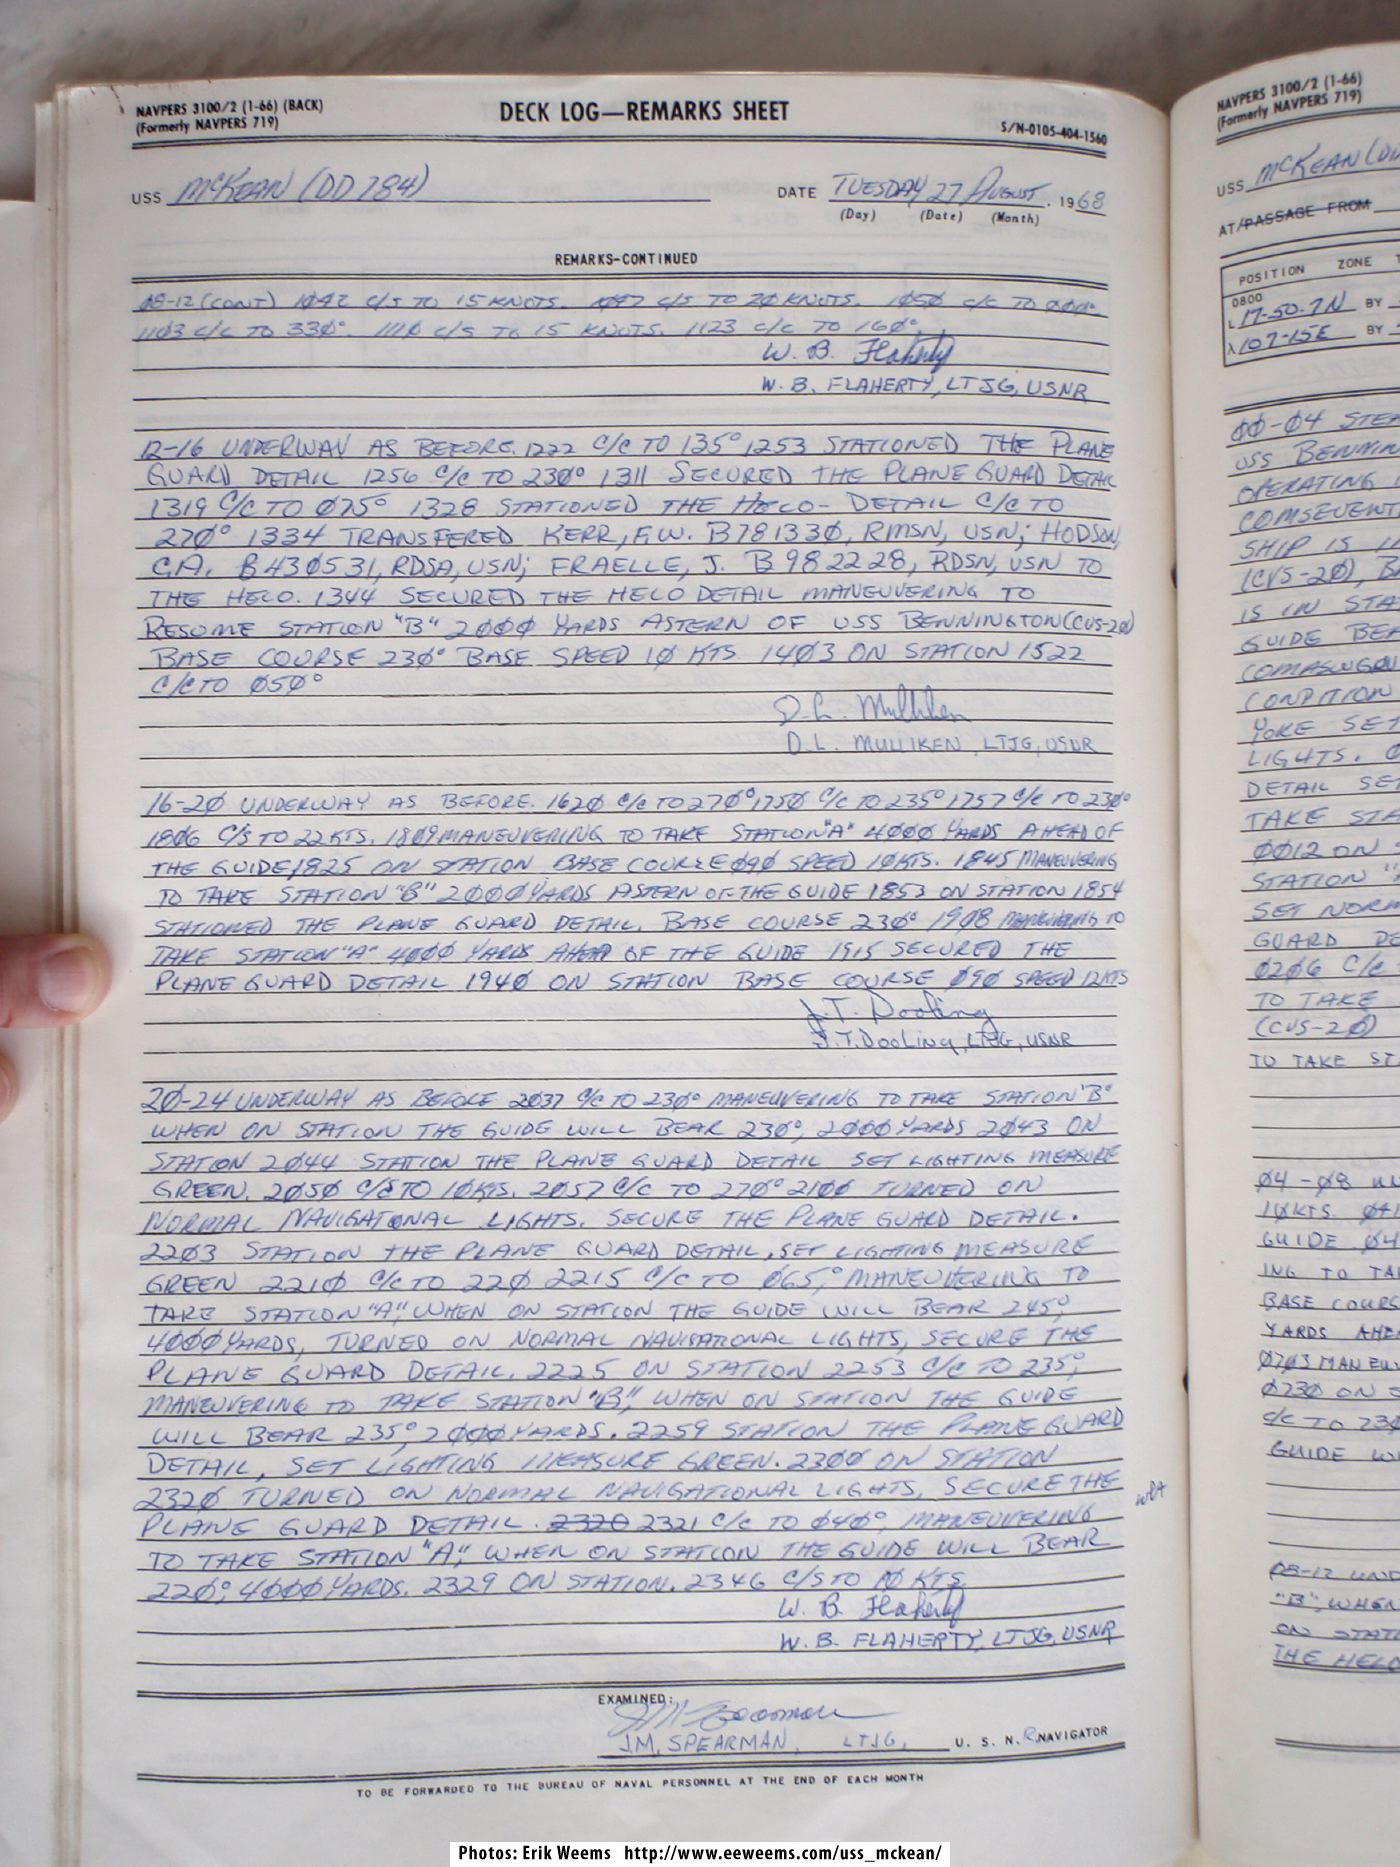 NAVPERS 3100/2 (1-66) (BACK)
(Formerly NAVPERS 719)
DECK LOG—REMARKS SHEET
S/N-0105-404-1560
USS McKEAN (DD 784)
DATE TUESDAY 27 AUGUST, 1968
(Day) (Date) (Month)
REMARKS-CONTINUED
Ø8-12 (CONT) 1Ø42 C/S TO 15 KNOTS. 1Ø47 C/S TO 2Ø KNOTS. 1Ø5Ø C/C TO ØØØ°.
11Ø3 C/C TO 33Ø°. 111Ø C/S TO 15 KNOTS. 1123 C/C TO 16Ø°.
W. B. Flaherty
W. B. FLAHERTY, LTJG, USNR
12-16 UNDERWAY AS BEFORE. 1222 C/C TO 135° 1253 STATIONED THE PLANE
GUARD DETAIL 1256 C/C TO 23Ø° 1311 SECURED THE PLANE GUARD DETAIL
1319 C/C TO Ø75° 1328 STATIONED THE HELO- DETAIL C/C TO
27Ø° 1334 TRANSFERED KERR, F.W. B78133Ø, RMSN, USN; HODSON,
G.A. B43Ø531, RDSA, USN; FRAELLE, J. B982228, RDSN, USN TO
THE HELO. 1344 SECURED THE HELO DETAIL MANEUVERING TO
RESUME STATION "B" 2ØØØ YARDS ASTERN OF USS BENNINGTON (CVS-2Ø)
BASE COURSE 23Ø° BASE SPEED 1Ø KTS 14Ø3 ON STATION 1522
C/C TO Ø5Ø°
D. L. Mulliken
D.L. MULLIKEN, LTJG, USNR
16-2Ø UNDERWAY AS BEFORE. 162Ø C/C TO 27Ø° 175Ø C/C TO 235° 1757 C/C TO 23Ø°
18Ø6 C/S TO 22 KTS. 18Ø9 MANEUVERING TO TAKE STATION "A" 4ØØØ YARDS AHEAD OF
THE GUIDE 1825 ON STATION BASE COURSE Ø9Ø SPEED 1ØKTS. 1845 MANEUVERING
TO TAKE STATION "B" 2ØØØ YARDS ASTERN OF THE GUIDE 1853 ON STATION 1854
STATIONED THE PLANE GUARD DETAIL. BASE COURSE 23Ø° 19Ø8 MANEUVERING TO
TAKE STATION "A" 4ØØØ YARDS AHEAD OF THE GUIDE 1915 SECURED THE
PLANE GUARD DETAIL 194Ø ON STATION BASE COURSE Ø9Ø SPEED 12KTS
J.T. Dooling
J.T. DOOLING, LTJG, USNR
2Ø-24 UNDERWAY AS BEFORE 2Ø37 C/C TO 23Ø° MANEUVERING TO TAKE STATION "B"
WHEN ON STATION THE GUIDE WILL BEAR 23Ø°, 2ØØØ YARDS 2Ø43 ON
STATION 2Ø44 STATION THE PLANE GUARD DETAIL SET LIGHTING MEASURE
GREEN. 2Ø5Ø C/S TO 1ØKTS. 2Ø57 C/C TO 27Ø° 21ØØ TURNED ON
NORMAL NAVIGATIONAL LIGHTS. SECURE THE PLANE GUARD DETAIL.
22Ø3 STATION THE PLANE GUARD DETAIL, SET LIGHTING MEASURE
GREEN 221Ø C/C TO 22Ø 2215 C/C TO Ø65°, MANEUVERING TO
TAKE STATION "A", WHEN ON STATION THE GUIDE WILL BEAR 245°,
4ØØØ YARDS, TURNED ON NORMAL NAVIGATIONAL LIGHTS, SECURE THE
PLANE GUARD DETAIL. 2225 ON STATION 2253 C/C TO 235°,
MANEUVERING TO TAKE STATION "B", WHEN ON STATION THE GUIDE
WILL BEAR 235°, 2ØØØ YARDS. 2259 STATION THE PLANE GUARD
DETAIL, SET LIGHTING MEASURE GREEN. 23ØØ ON STATION
232Ø TURNED ON NORMAL NAVIGATIONAL LIGHTS, SECURE THE
PLANE GUARD DETAIL. 2320 2321 C/C TO Ø4Ø°, MANEUVERING
TO TAKE STATION "A", WHEN ON STATION THE GUIDE WILL BEAR
22Ø°, 4ØØØ YARDS. 2329 ON STATION. 2346 C/S TO 1Ø KTS
W. B. Flaherty
W. B. FLAHERTY, LTJG, USNR
EXAMINED:
J M Spearman
J.M. SPEARMAN, LTJG, U. S. N. R. NAVIGATOR
TO BE FORWARDED TO THE BUREAU OF NAVAL PERSONNEL AT THE END OF EACH MONTH
NAVPERS 3100/2 (1-66)
(Formerly NAVPERS 719)
USS McKEAN (DD
AT/PASSAGE FROM
POSITION ZONE
0800
L 17-50.7N BY
λ 107-15E BY
ØØ-Ø4 STEA
USS BENNIN
OPERATING
COMSEVENT
SHIP IS
(CVS-2Ø), BA
IS IN STA
GUIDE BEA
CONDITION
YOKE SET
LIGHTS.
DETAIL SE
TAKE STA
ØØ12 ON
STATION
SET NORM
GUARD DE
Ø2Ø6 C/C
TO TAKE
(CVS-2Ø)
TO TAKE ST
Ø4-Ø8 U
1ØKTS. Ø4
GUIDE Ø4
ING TO TA
BASE COURS
YARDS AHE
Ø7Ø3 MANEU
Ø73Ø ON S
C/C TO 23Ø
GUIDE WI
Ø8-12 UND
"B", WHEN
ON STATI
THE HELO
Photos: Erik Weems http://www.eeweems.com/uss_mckean/